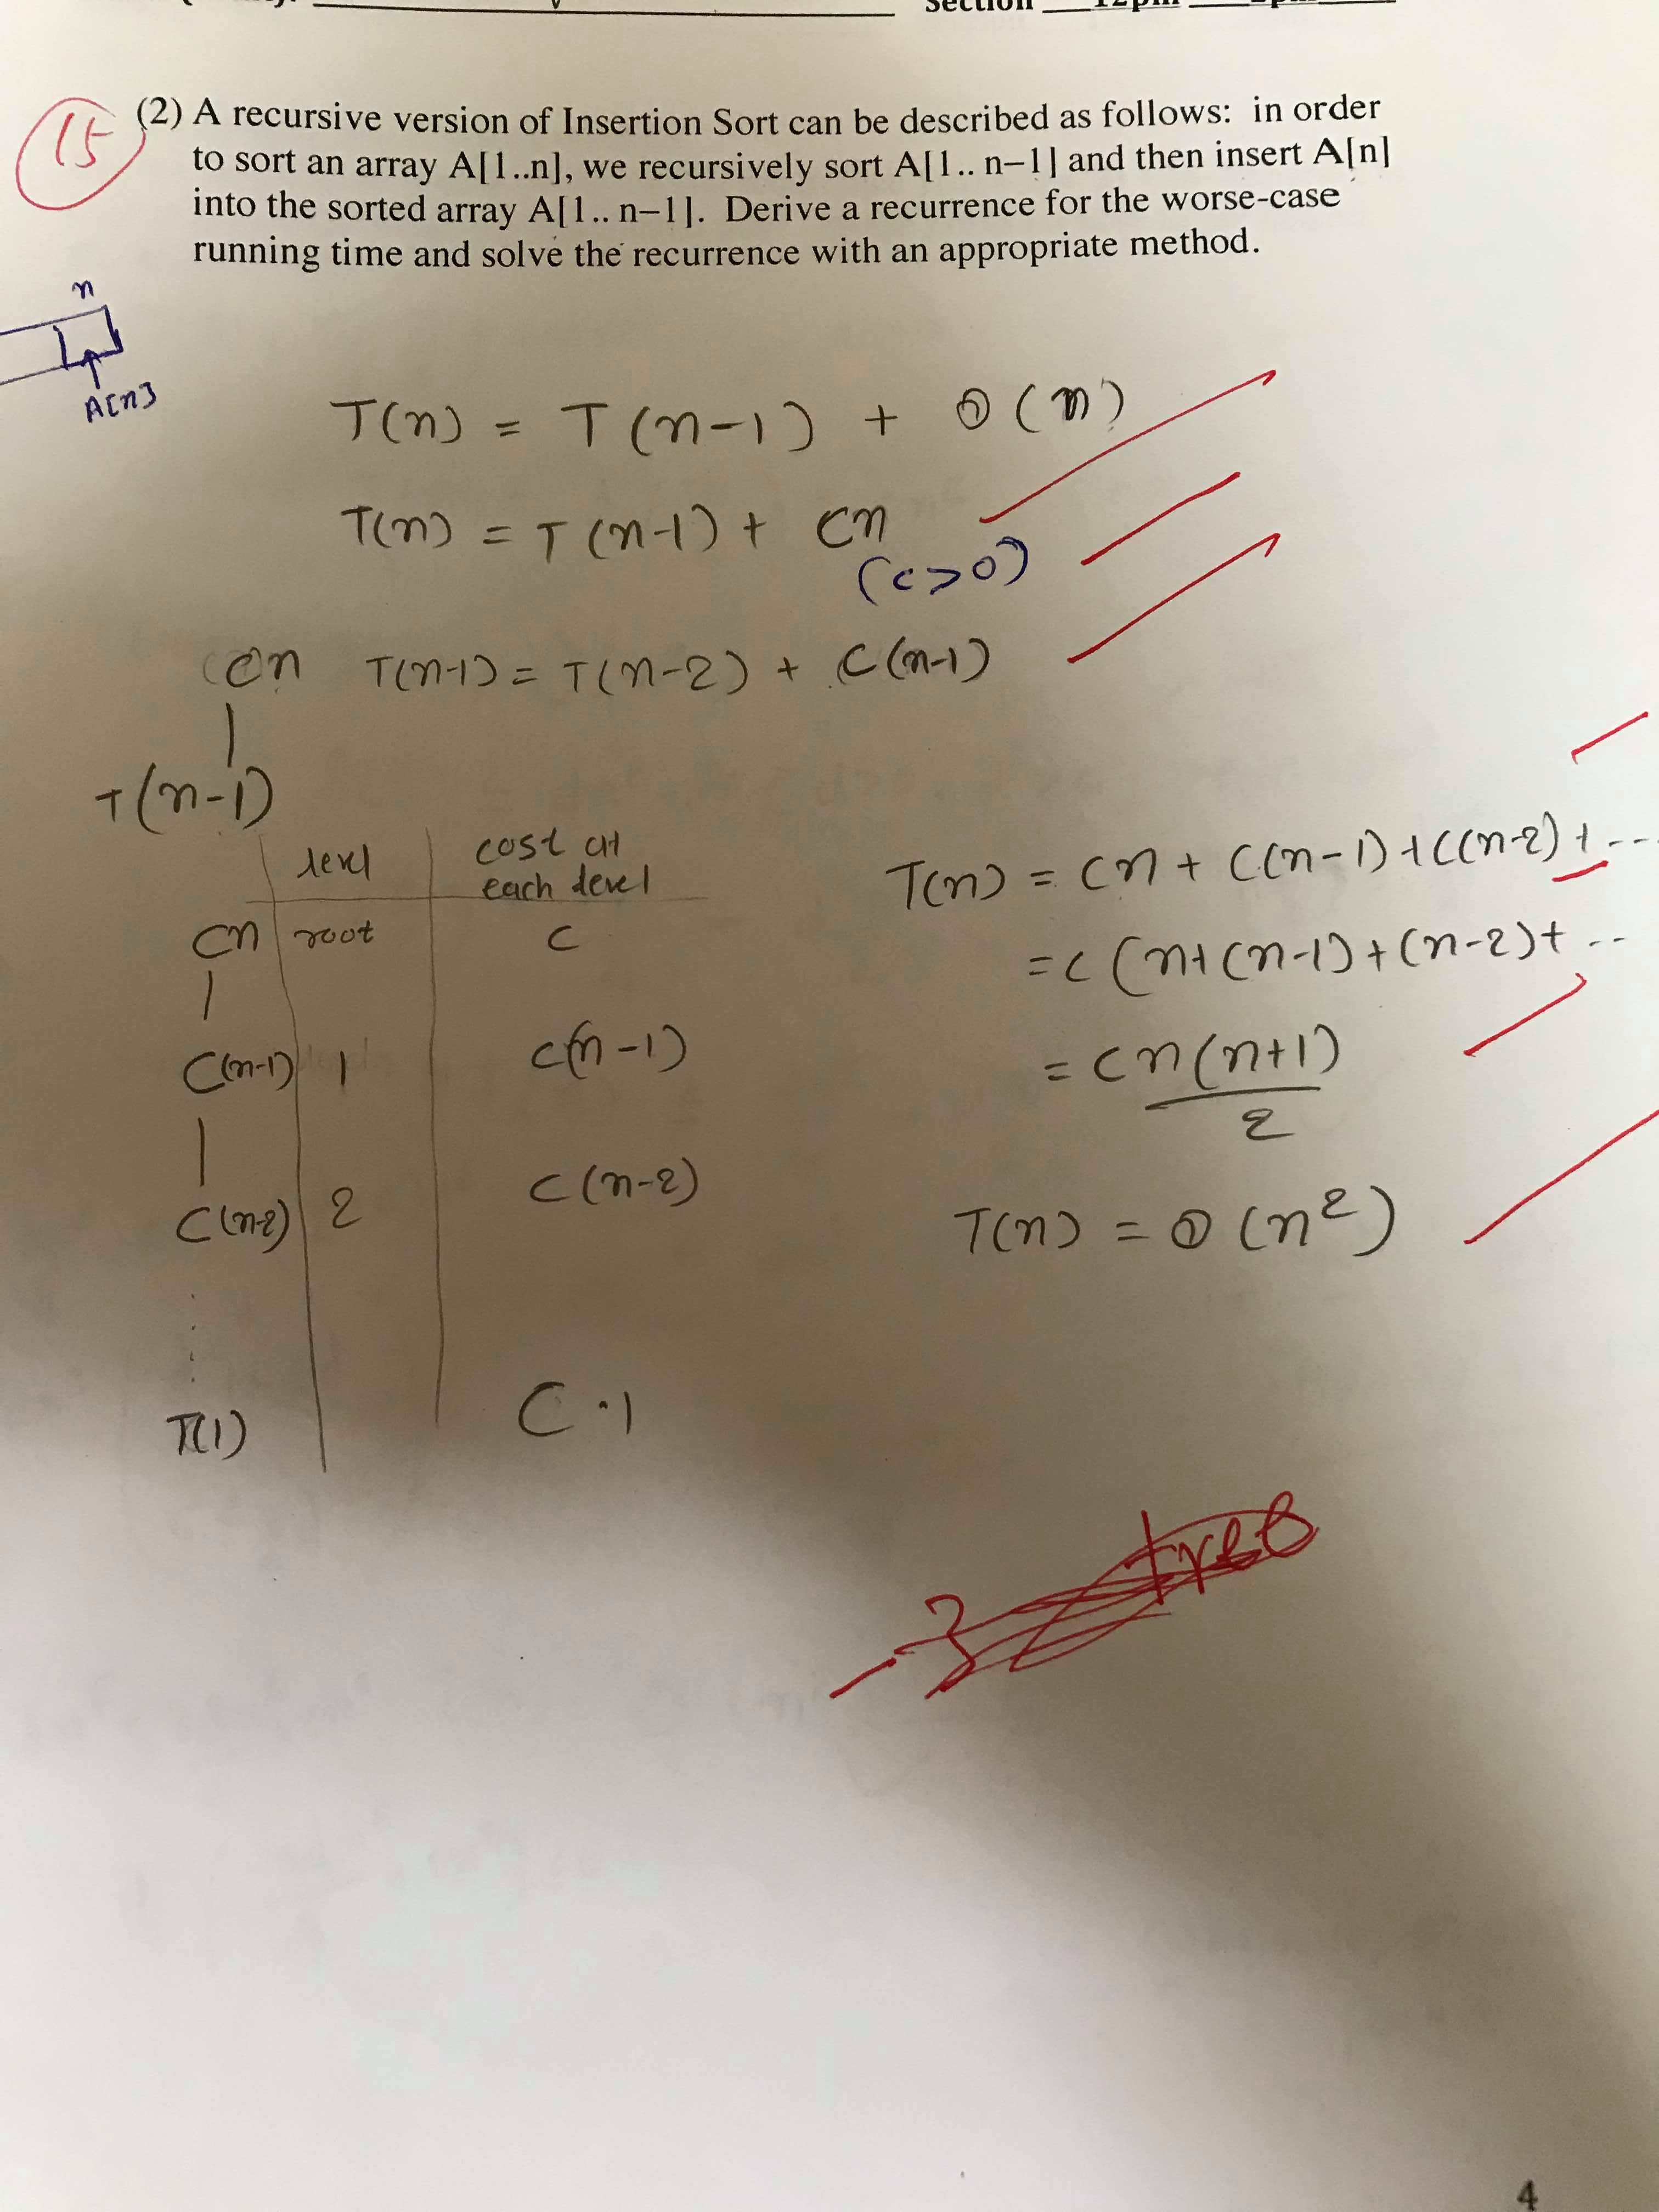 Section 12pm
15
(2) A recursive version of Insertion Sort can be described as follows: in order
to sort an array A[1..n], we recursively sort A[1.. n–1] and then insert A[n]
into the sorted array A[1.. n–1]. Derive a recurrence for the worse-case
running time and solve the recurrence with an appropriate method.
n
A[n]
T(n) = T(n-1) + Θ(n)
T(n) = T(n-1) + cn
(c>0)
cn T(n-1) = T(n-2) + c(n-1)
T(n-1)
level cost at
each level
cn root c
c(n-1) 1 c(n-1)
c(n-2) 2 c(n-2)
T(1) c·1
T(n) = cn + c(n-1) + c(n-2) + ...
= c(n+(n-1)+(n-2)+ ..
= cn(n+1)
2
T(n) = Θ(n²)
-3 tree
4